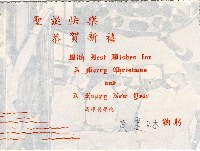 聖誕快樂
恭賀新禧
With Best Wishes for
A Merry Christmas
and
A Happy New Year
鞠躬